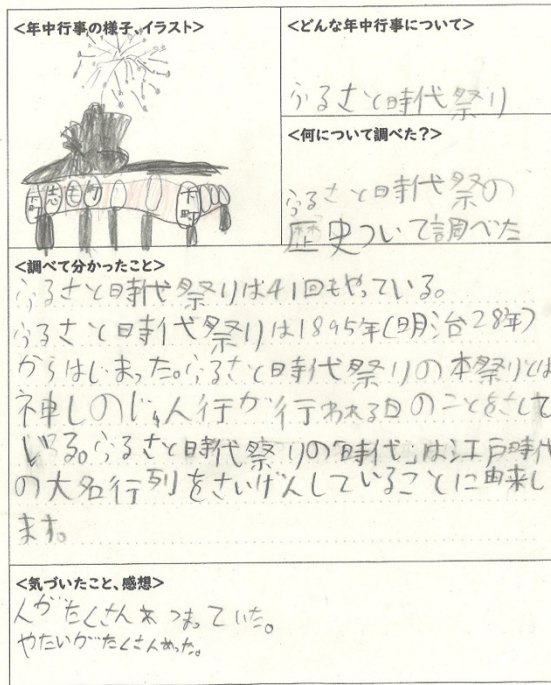 <年中行事の様子、イラスト>
下町
志も町
下町
<どんな年中行事について>
ふるさと時代祭り
<何について調べた?>
ふるさと時代祭の
歴史ついて調べた
<調べて分かったこと>
ふるさと時代祭りは41回もやっている。
ふるさと時代祭りは1895年(明治28年)
からはじまった。ふるさと時代祭りの本祭りとは
神しのじゅん行が行われる日のことをさして
いる。ふるさと時代祭りの「時代」は江戸時代
の大名行列をさいげんしていることに由来し
ます。
<気づいたこと、感想>
人がたくさんあつまっていた。
やたいがたくさんあった。